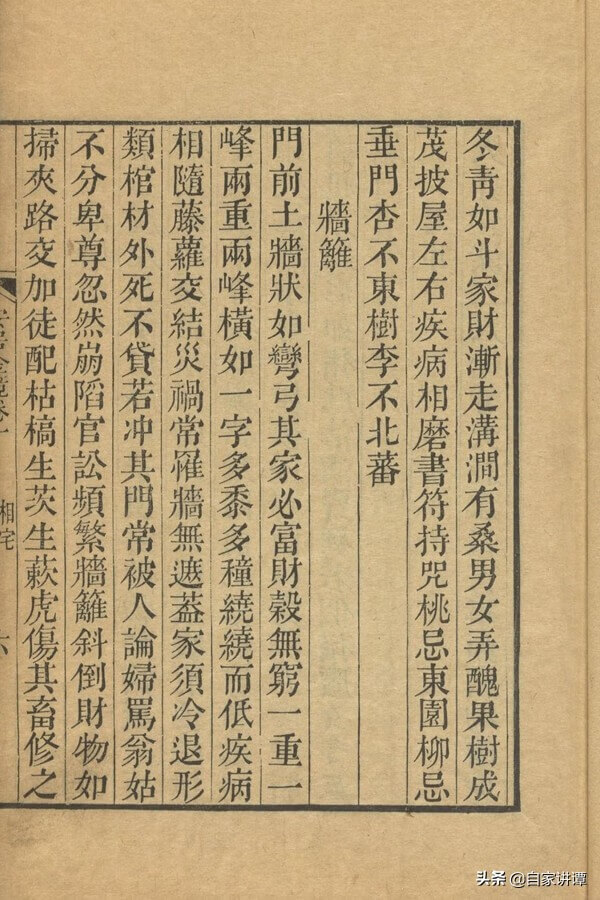 冬靑如斗家財漸走溝澗有桑男女弄醜果樹成
茂披屋左右疾病相磨書符持咒桃忌東園柳忌
垂門杏不東樹李不北蕃
牆籬
門前土牆狀如彎弓其家必富財穀無窮一重一
峰兩重兩峰橫如一字多黍多穜繞繞而低疾病
相隨藤蘿交結災禍常罹牆無遮葢家須冷退形
類棺材外死不貸若冲其門常被人論婦罵翁姑
不分卑尊忽然崩陷官訟頻繁牆籬斜倒財物如
掃夾路交加徒配枯槁生茨生蔌虎傷其畜修之
相宅
六
头条 @自家讲谭